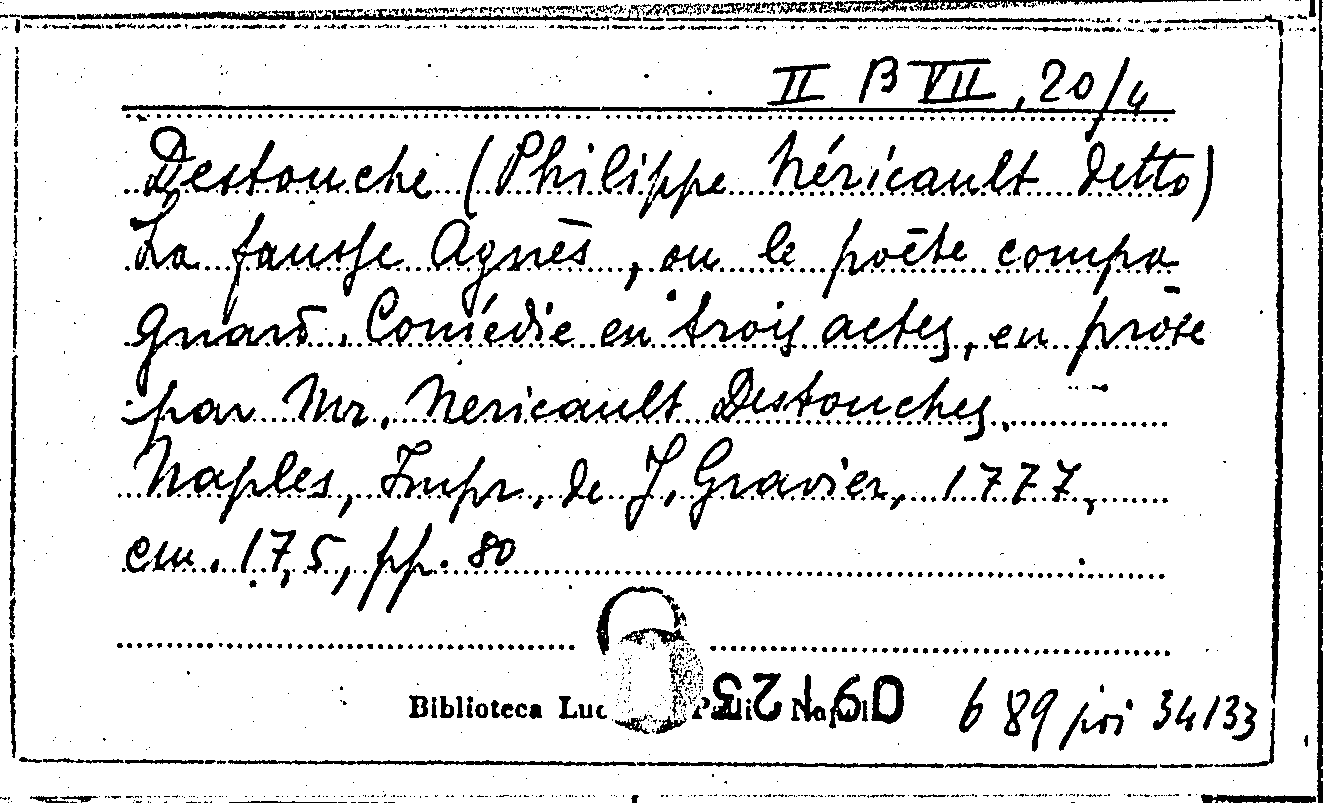 II B VII, 20/4
Destouche (Philippe Néricault detto)
La fausse Agnès, ou le poëte campa
gnard. Comédie en trois actes, en prose
par Mr. Nericault Destouches.
Naples, Impr. de J. Gravier, 1777,
cm. 17,5, pp. 80
Biblioteca Luc
09123
6 89 poi 34133